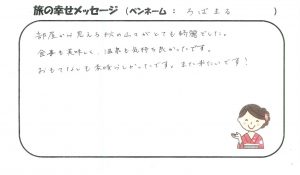 旅の幸せメッセージ (ペンネーム : ろばまる )
部屋から見える秋の山々がとても綺麗でした。
食事も美味しく、温泉も気持ち良かったです。
おもてなしも素晴らしかったです。また来たいです!